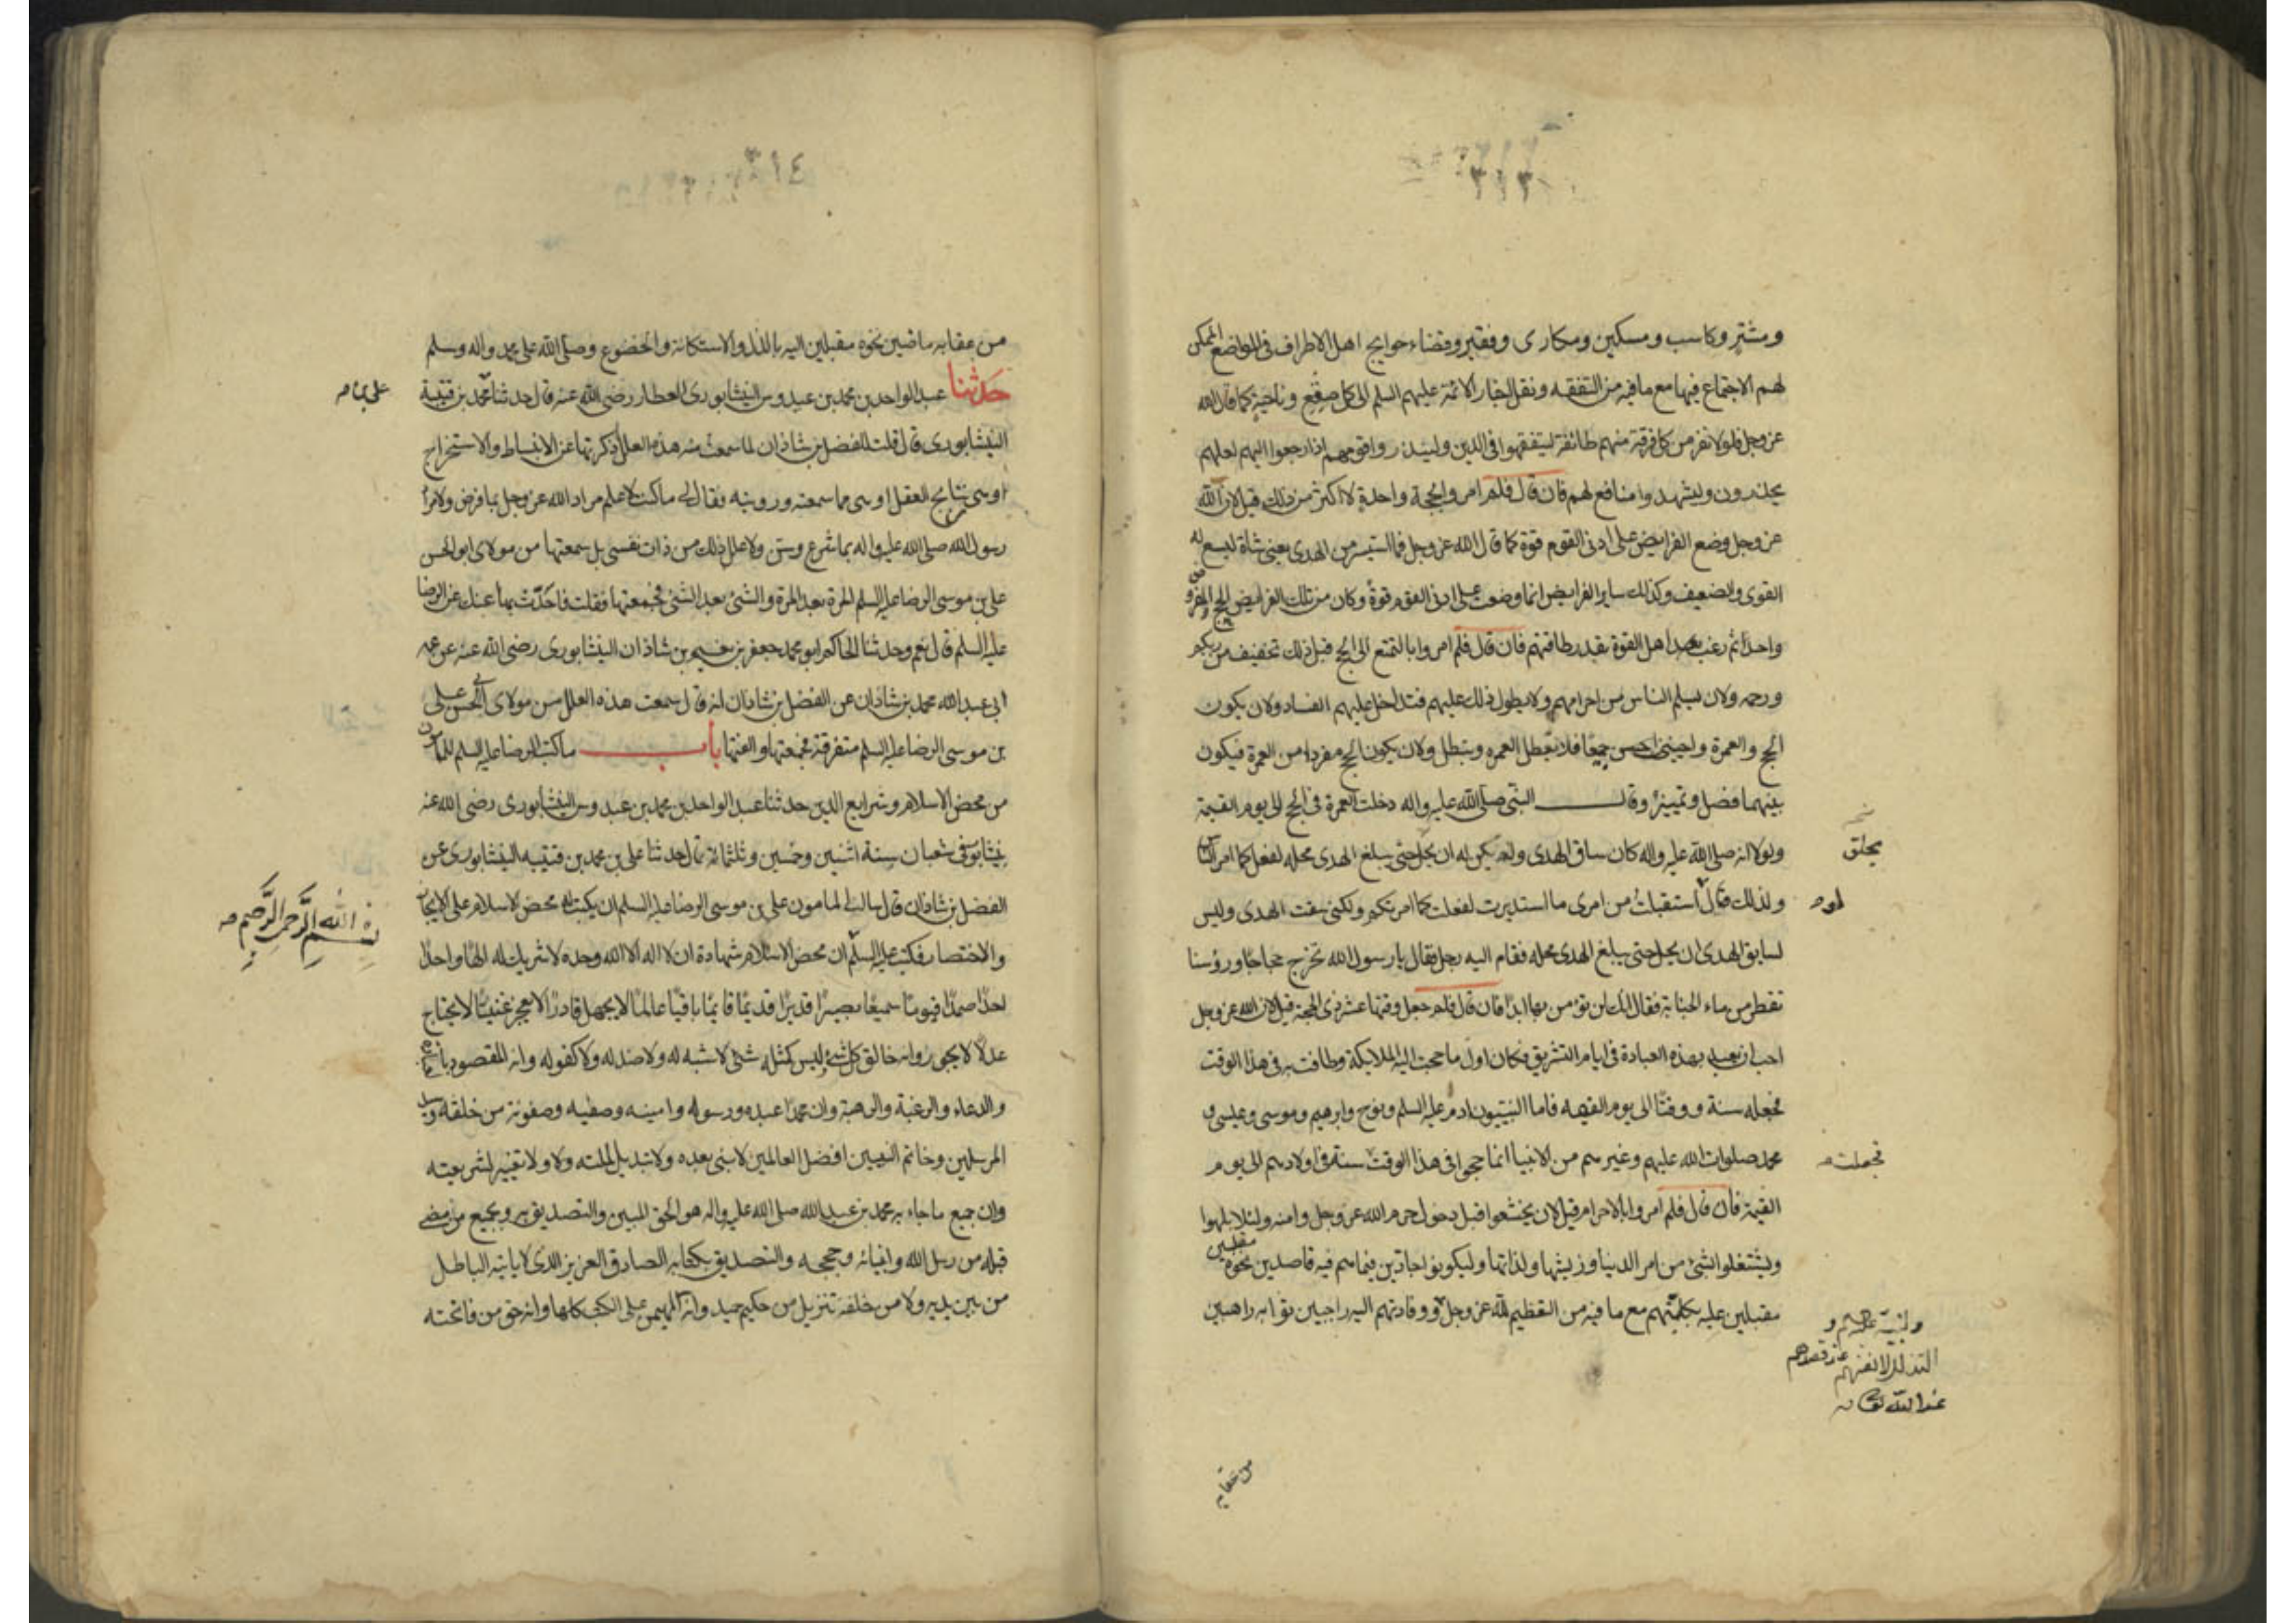 ٣١٣
ومشتر وكاسب ومسكين ومكارى وفقير وقضاء حوايج اهل الاطراف فى المواضع الممكن
لهم الاجتماع فيها مع ما فيه من التفقه ونقل اخبار الائمة عليهم السلم الى كل صقع وناحية كما قال الله
عز وجل فلولا نفر من كل فرقة منهم طائفة ليتفقهوا فى الدين ولينذروا قومهم اذا رجعوا اليهم لعلهم
يحذرون وليشهدوا منافع لهم فان قال فلم امروا بحجة واحدة لا اكثر من ذلك قيل لان الله
عز وجل وضع الفرايض على ادنى القوم قوة كما قال الله عز وجل فما استيسر من الهدى يعنى شاة ليسع له
القوى والضعيف وكذلك ساير الفرايض انما وضعت على ادنى القوم قوة وكان من تلك الفرايض الحج المفروض
واحدا ثم رغب بعد اهل القوة بقدر طاقتهم فان قال فلم امروا بالتمتع الى الحج قيل ذلك تخفيف من ربكم
ورحمه ولان يسلم الناس من احرامهم ولا يطول ذلك عليهم فتدخل عليهم الفساد ولان يكون
الحج والعمرة واجبين جميعا فلا تعطل العمره وتبطل ولان يكون الحج مفردا من العمرة فيكون
بينهما فضل وتمييز وقال النبى صلى الله عليه واله دخلت العمرة فى الحج الى يوم القيمة
ولولا انه صلى الله عليه واله كان ساق الهدى ولم يكن له ان يحل حتى يبلغ الهدى محله لفعل كما امر الناس
يحلق
ولذلك قال استقبلت من امرى ما استدبرت لفعلت كما امرتكم ولكنى سقت الهدى وليس
لو
لسايق الهدى ان يحل حتى يبلغ الهدى محله فقام اليه رجل فقال يا رسول الله نخرج حجاجا ورؤسنا
تقطر من ماء الجنابة فقال انك لن تؤمن بها ابدا فان قال فلم جعل وقتها عشر ذى الحجة قيل لان الله عز وجل
احب ان يعبد بهذه العبادة فى ايام التشريق فكان اول ما حجت اليه الملايكة وطافت به فى هذا الوقت
فجعله سنة ووقتا الى يوم القيمه فاما النبييون ادم عليه السلم ونوح وابرهيم وموسى وعيسى و
محمد صلوات الله عليهم وغيرهم من الانبيا انما حجوا فى هذا الوقت سنة فى اولادهم الى يوم
فجعلت
القيمة فان قال فلم امروا بالاحرام قيل لان يخشعوا قبل دخول حرم الله عز وجل وامنه ولئلا يلهوا
ويشتغلوا بشئ من امر الدنيا وزينتها ولذاتها وليكونوا جادين فيما هم فيه قاصدين نحوه
مقبلين
مقبلين عليه بكليتهم مع ما فيه من التعظيم لله عز وجل ووفادتهم اليه راجين ثوابه راهبين
ولبيته
التذلل لانفسهم عند قصدهم
عند الله تعالى
من عقابه
٣١٤
من عقابه ماضين نحوه مقبلين اليه بالذل والاستكانة والخضوع وصلى الله على محمد واله وسلم
حدثنا عبد الواحد بن محمد بن عبدوس النيشابورى العطار رضى الله عنه قال حدثنا محمد بن قتيبة
على بن
النيشابورى قال قلت للفضل بن شاذان لما سمعت منه هذه العلل اذكرتها عن الانبساط والاستخراج
او هى نتايج العقل او هى مما سمعته ورويته فقال لى ما كنت لاعلم مراد الله عز وجل بما فرض ولا مراد
رسول الله صلى الله عليه واله بما شرع وسن ولا علل ذلك من ذات نفسى بل سمعتها من مولاى ابو الحسن
على بن موسى الرضا عليه السلم المرة بعد المرة والشئ بعد الشئ فجمعتها فقلت فاحدث بها عنك عن الرضا
عليه السلم قال نعم وحدثنا الحاكم ابو محمد جعفر بن نعيم بن شاذان النيشابورى رضى الله عنه عن عمه
ابى عبد الله محمد بن شاذان عن الفضل بن شاذان انه قال سمعت هذه العلل من مولاى ابى الحسن على
بن موسى الرضا عليه السلم متفرقة فجمعتها والفتها باب ما كتب الرضا عليه السلم للمامون
من محض الاسلام وشرايع الدين حدثنا عبد الواحد بن محمد بن عبدوس النيشابورى رضى الله عنه
بنيشابور فى شعبان سنة اثنين وخمسين وثلثمائة قال حدثنا على بن محمد بن قتيبه النيشابورى عن
الفضل بن شاذان قال سال المامون على بن موسى الرضا عليه السلم ان يكتب له محض الاسلام على الايجاز
بسم الله الرحمن الرحيم
والاختصار فكتب عليه السلم ان محض الاسلام شهادة ان لا اله الا الله وحده لا شريك له الها واحدا
احدا صمدا قيوما سميعا بصيرا قديرا قديما قايما باقيا عالما لا يجهل قادرا لا يعجز غنيا لا يحتاج
عدلا لا يجور وانه خالق كل شئ وليس كمثله شئ لا شبه له ولا ضد له ولا كفو له وانه المقصود بالعبادة
والدعاء والرغبة والرهبة وان محمدا عبده ورسوله وامينه وصفيه وصفوته من خلقه وسيد
المرسلين وخاتم النبيين افضل العالمين لا نبى بعده ولا تبديل لملته ولا ولا تغيير لشريعته
وان جميع ما جاء به محمد بن عبد الله صلى الله عليه واله هو الحق المبين والتصديق به وبجميع من مضى
قبله من رسل الله وانبيائه وحججه والتصديق بكتابه الصادق العزيز الذى لا ياتيه الباطل
من بين يديه ولا من خلفه تنزيل من حكيم حميد وانه المهيمن على الكتب كلها وانه حق من فاتحته